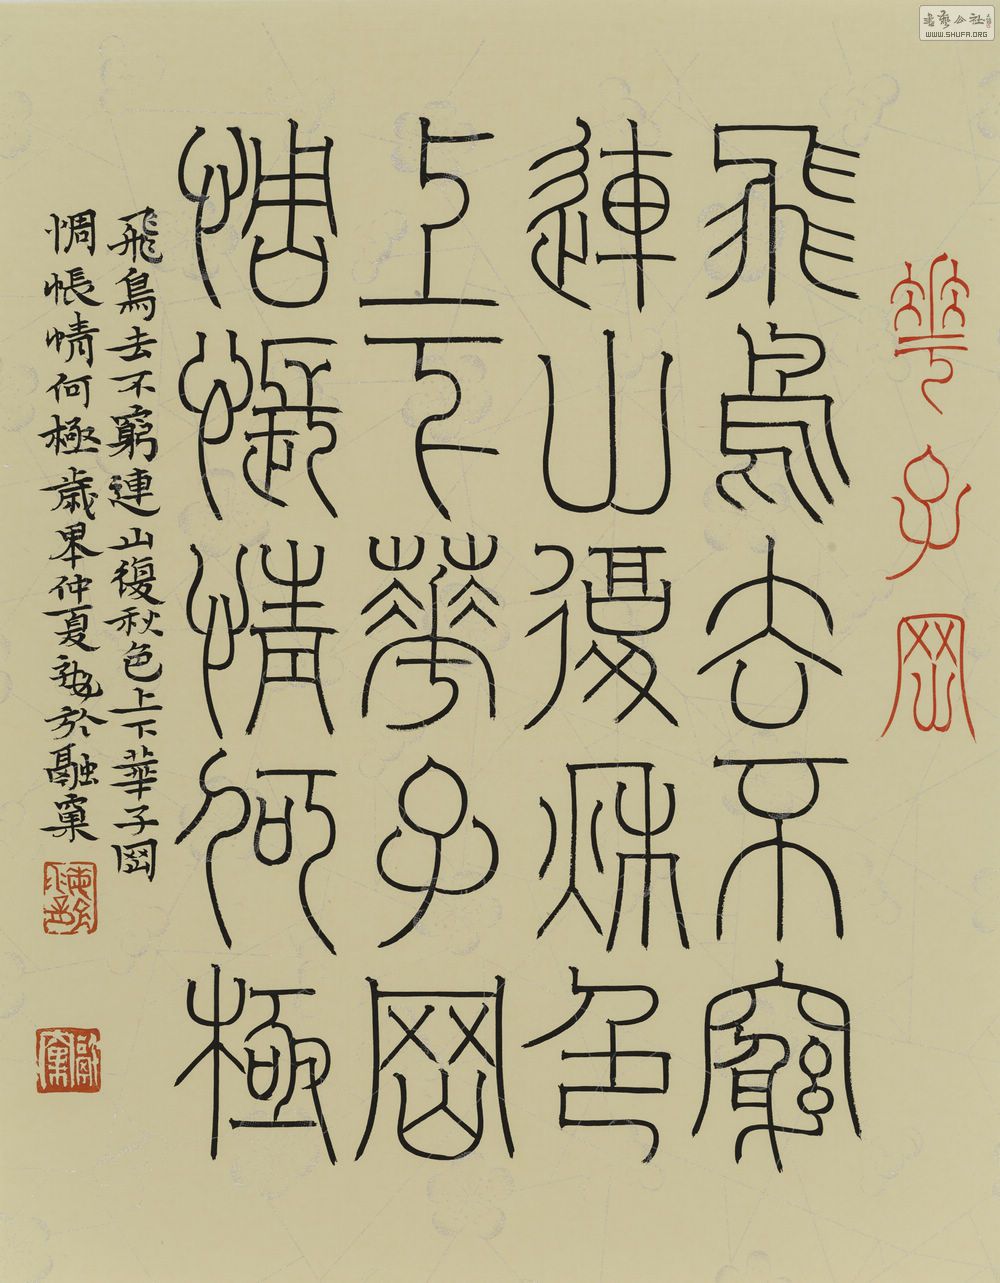 華子岡
飛鳥去不窮
連山復秋色
上下華子岡
惆悵情何極
飛鳥去不窮連山復秋色上下華子岡
惆悵情何極歲仲夏於融
書藝公社
WWW.SHUFA.ORG